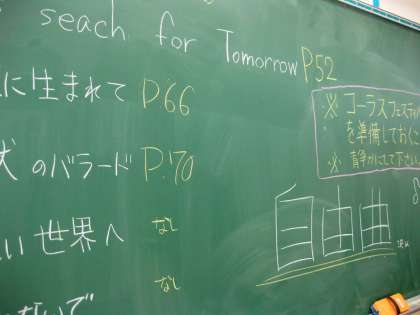 seach for Tomorrow P52
に生まれて P.66
犬のバラード P.70
い世界へ なし
なし
ないで
※コーラスフェスティバ
を準備しておくこ
※静かにして下さい。
自由曲